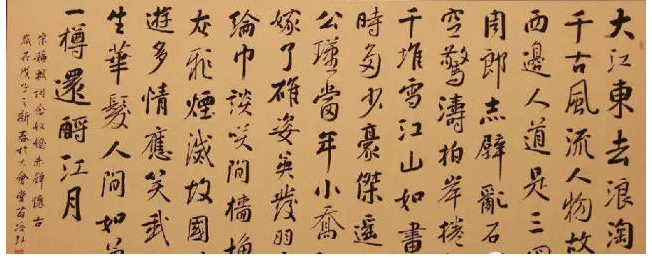 大江東去浪淘
千古風流人物故
西邊人道是三國
周郎赤壁亂石
空驚濤拍岸捲
千堆雪江山如畫
時多少豪傑遥
公瑾當年小喬
嫁了雄姿英發羽
綸巾談笑間檣櫓
灰飛煙滅故國
遊多情應笑我
生華髮人間如
一樽還酹江月
宋蘇軾詞念奴嬌赤壁懷古
歲在戊子之新春於大會堂苗